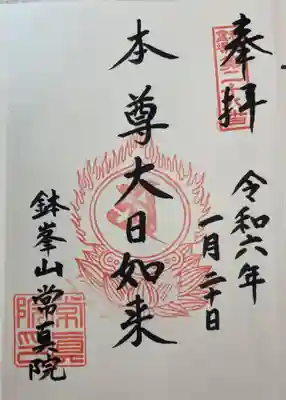 奉拝
令和六年
一月二十日
本尊大日如来
鉢峯山常真院